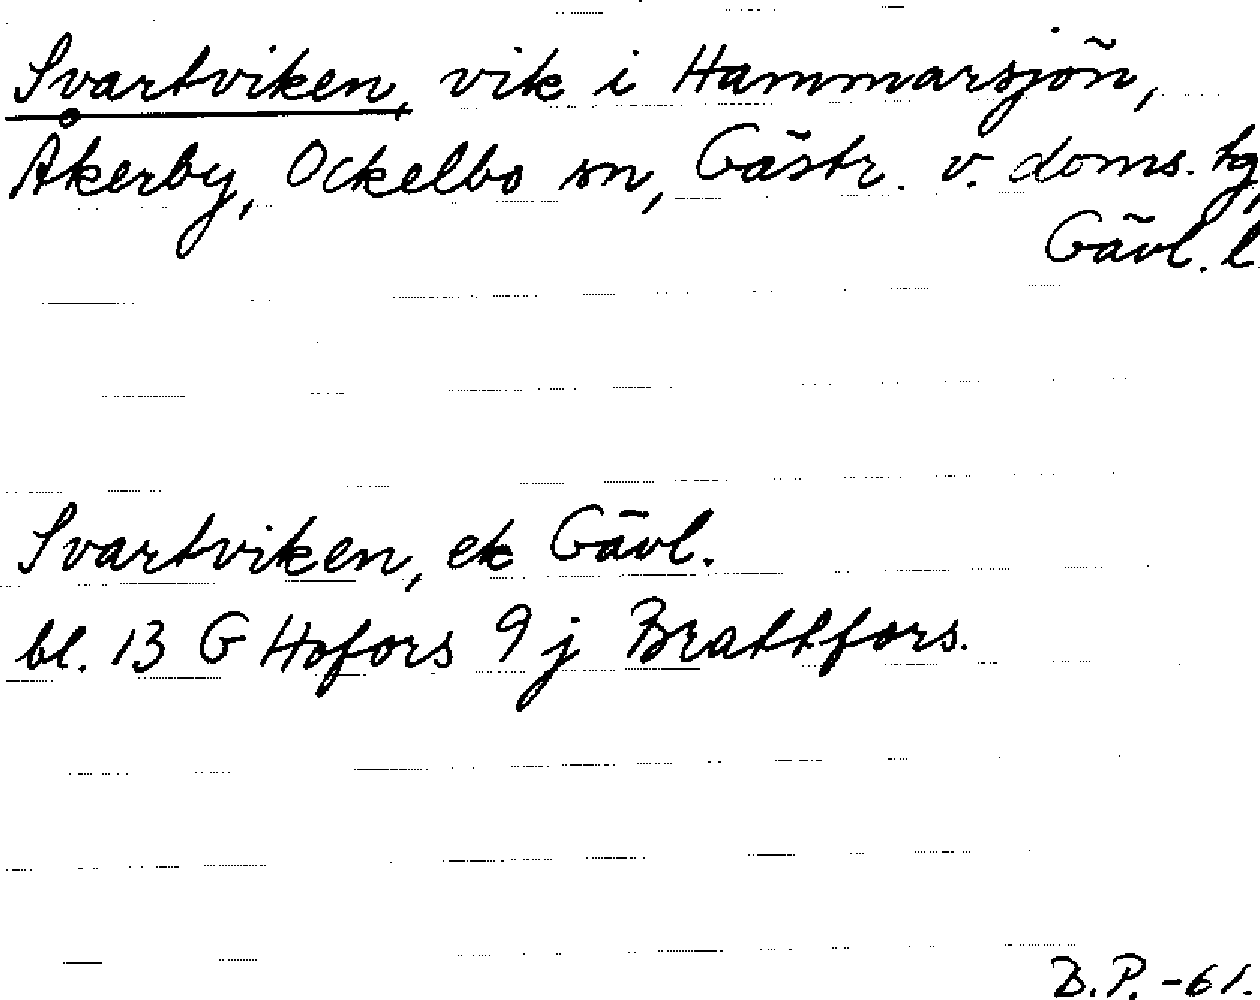 Svartviken, vik i Hammarsjön,
Åkerby, Ockelbo sn, Gästr. v. doms. tg,
Gävl. l.
Svartviken, ek Gävl.
bl. 13 G Hofors 9 j Brattfors.
B.P. -61.